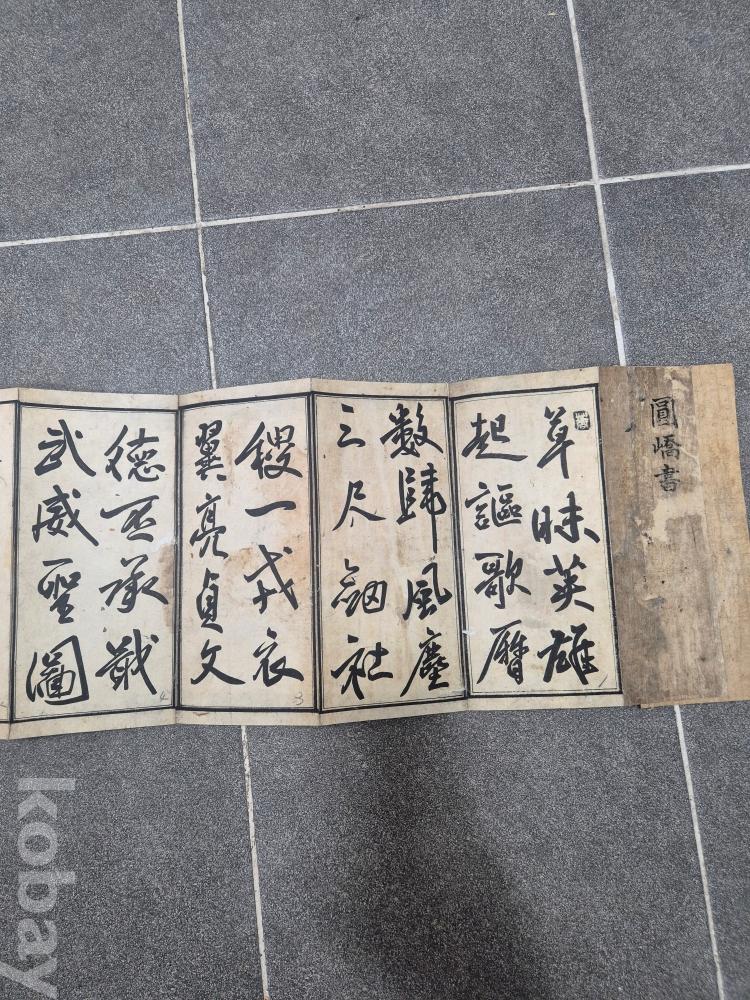 圓嶠書
草昧英雄
起謳歌曆
數歸風塵
三尺劍社
稷一戎衣
翼亮貞文
德丕承戢
武威聖圖
3
4
kobay